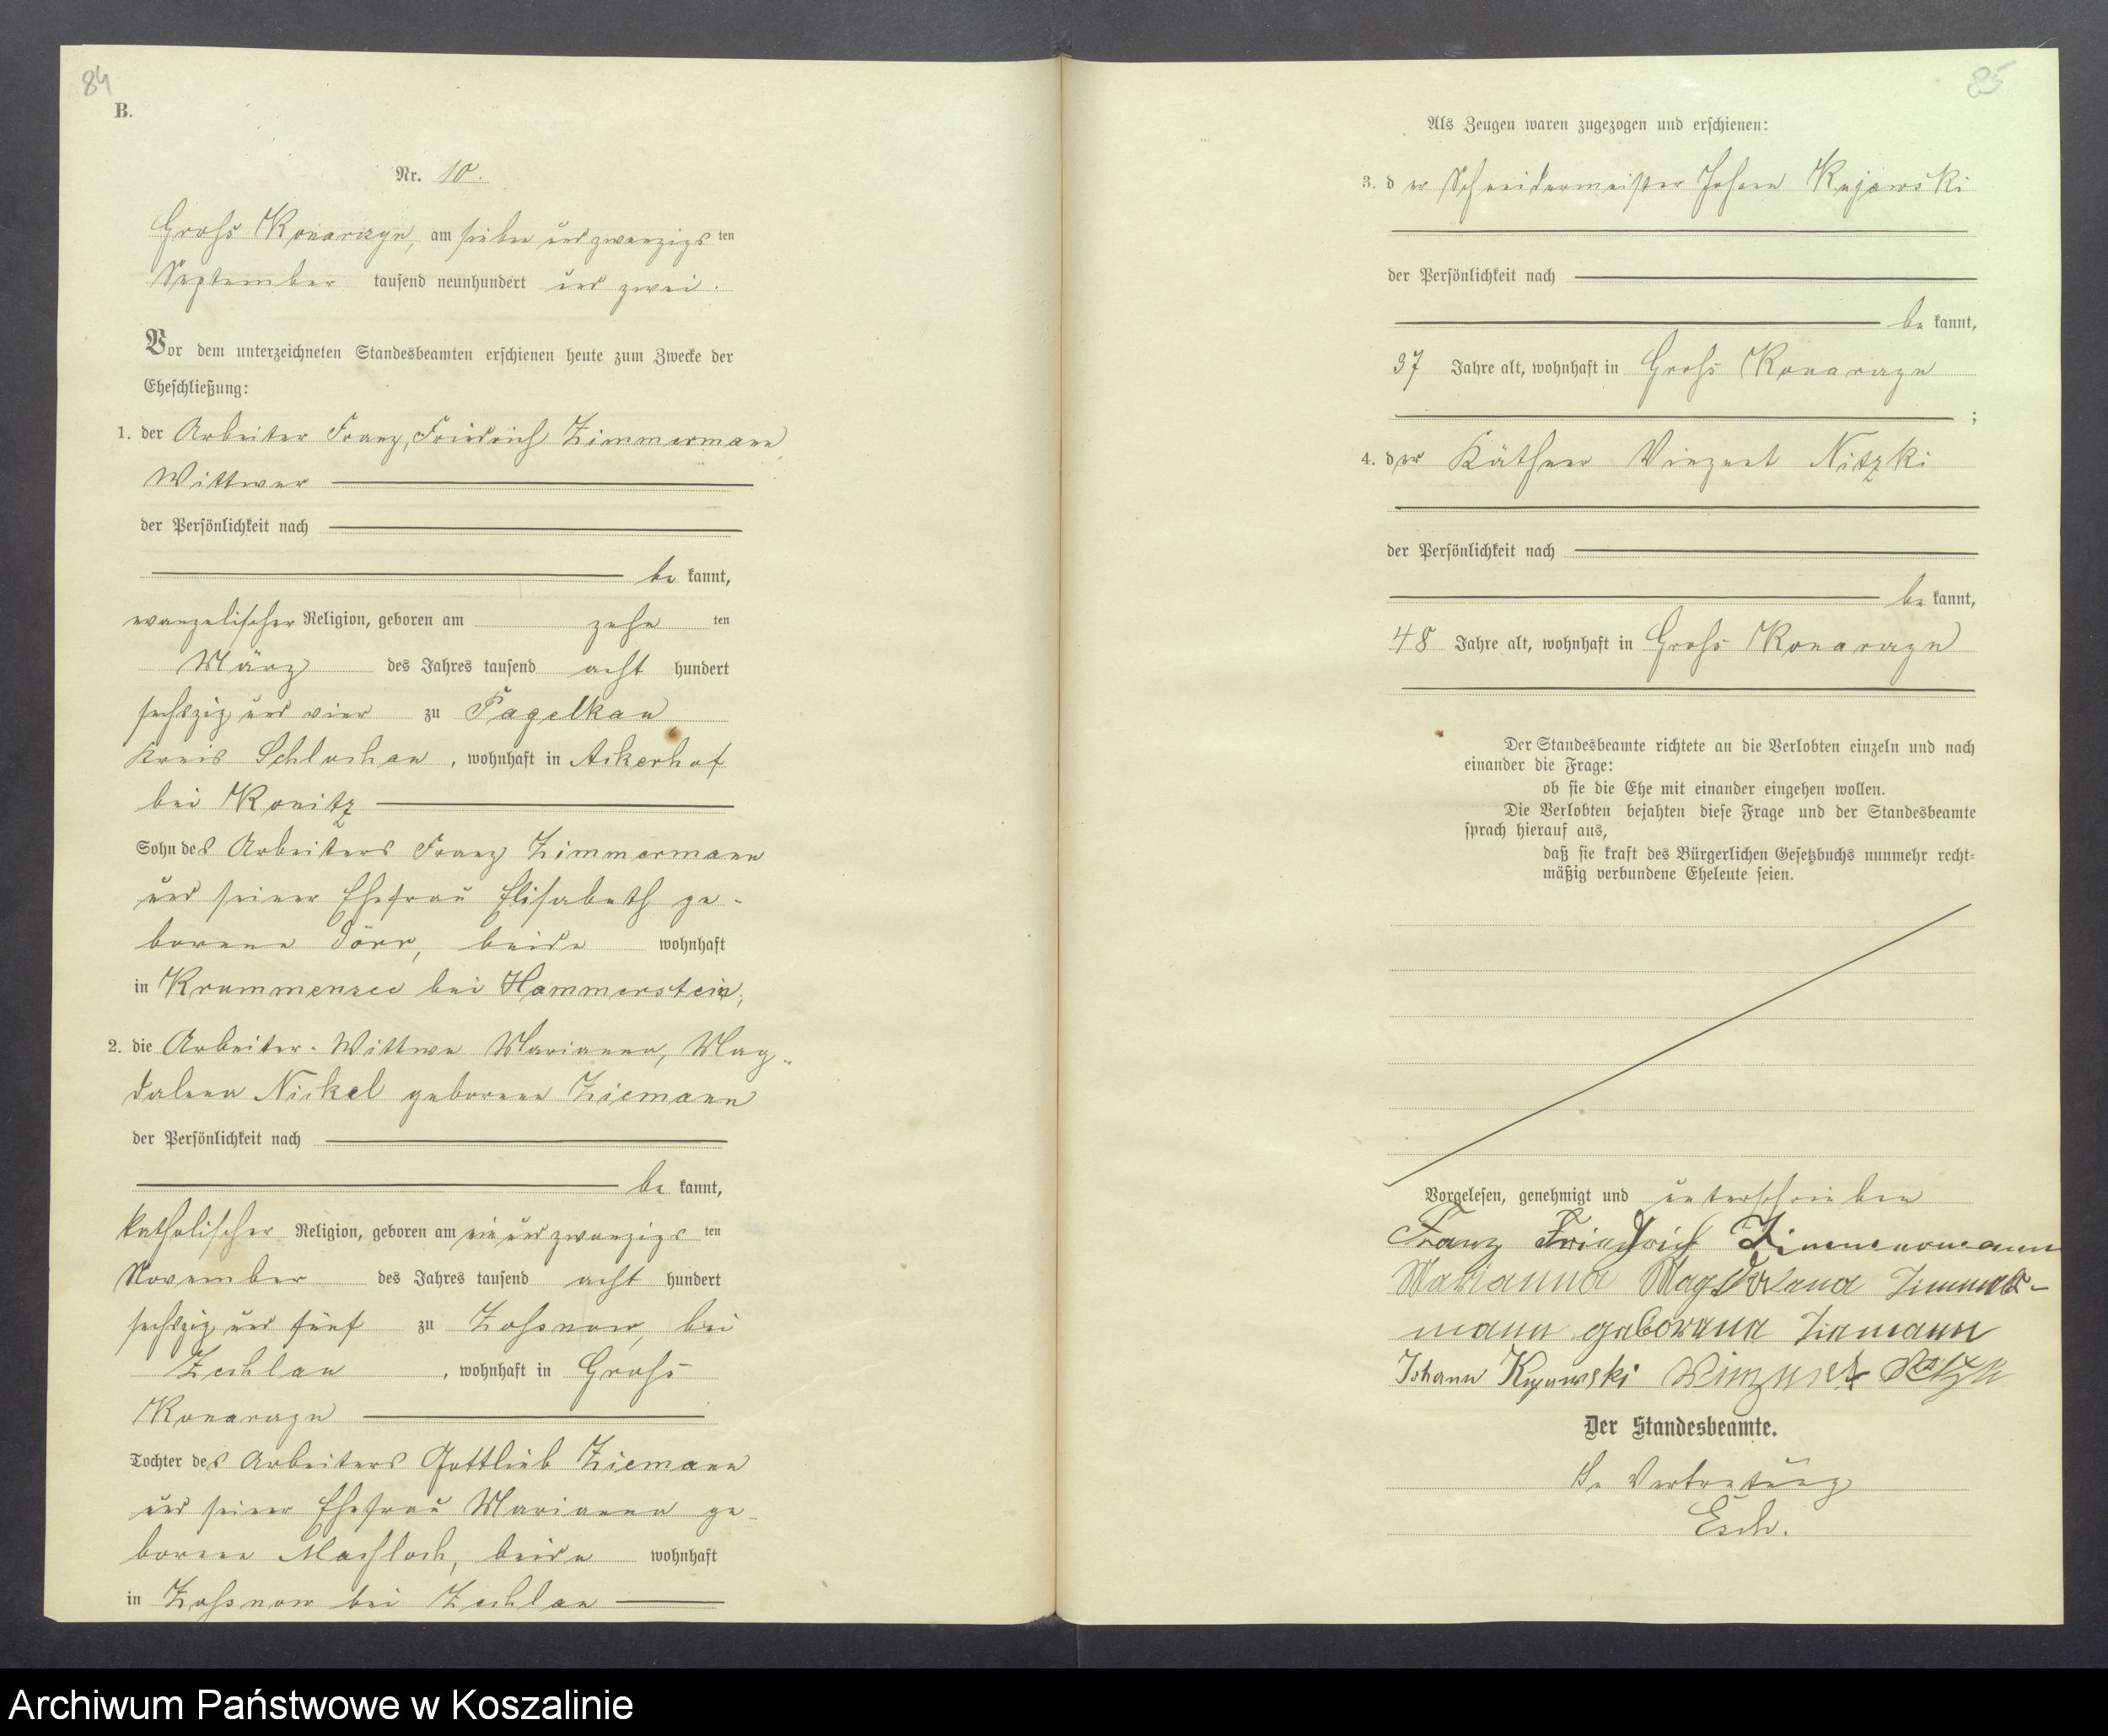 84
B.
Nr. 10.
Groß Konarczyn, am sieben und zwanzigs ten
September tausend neunhundert und zwei.
Vor dem unterzeichneten Standesbeamten erschienen heute zum Zwecke der
Eheschließung:
1. der Arbeiter Franz, Friedrich Zimmermann,
Wittwer
der Persönlichkeit nach
be kannt,
evangelischer Religion, geboren am zehn ten
März des Jahres tausend acht hundert
sechszig und vier zu Pagelkau
Kreis Schlochau, wohnhaft in Ackerhof
bei Konitz
Sohn des Arbeiters Franz Zimmermann
und seiner Ehefrau Elisabeth ge-
borene Dörr, beide wohnhaft
in Krummensee bei Hammerstein;
2. die Arbeiter-Wittwe Marianna, Mag-
dalena Nickel geborene Ziemann
der Persönlichkeit nach
be kannt,
katholischer Religion, geboren am ein und zwanzigs ten
November des Jahres tausend acht hundert
sechszig und fünf zu Zoßnow, bei
Zechlau, wohnhaft in Groß
Konarzyn
Tochter des Arbeiters Gottlieb Ziemann
und seiner Ehefrau Marianna ge-
borene beide wohnhaft
in Zoßnow bei Zechlau
85
Als Zeugen waren zugezogen und erschienen:
3. d er Schneidermeister Johann Kujawski
der Persönlichkeit nach
be kannt,
37 Jahre alt, wohnhaft in Groß Konarzyn
;
4. d er Käthner Vinzent Nitzki
der Persönlichkeit nach
be kannt,
48 Jahre alt, wohnhaft in Groß Konarzyn
Der Standesbeamte richtete an die Verlobten einzeln und nach
einander die Frage:
ob sie die Ehe mit einander eingehen wollen.
Die Verlobten bejahten diese Frage und der Standesbeamte
sprach hierauf aus,
daß sie kraft des Bürgerlichen Gesetzbuchs nunmehr recht-
mäßig verbundene Eheleute seien.
Vorgelesen, genehmigt und unterschrieben
Franz Friedrich Zimmermann
Marianna Magdalena Zimmer-
mann geborene Ziemann
Johann Kujawski
Der Standesbeamte.
In Vertretung
Esch.
Archiwum Państwowe w Koszalinie